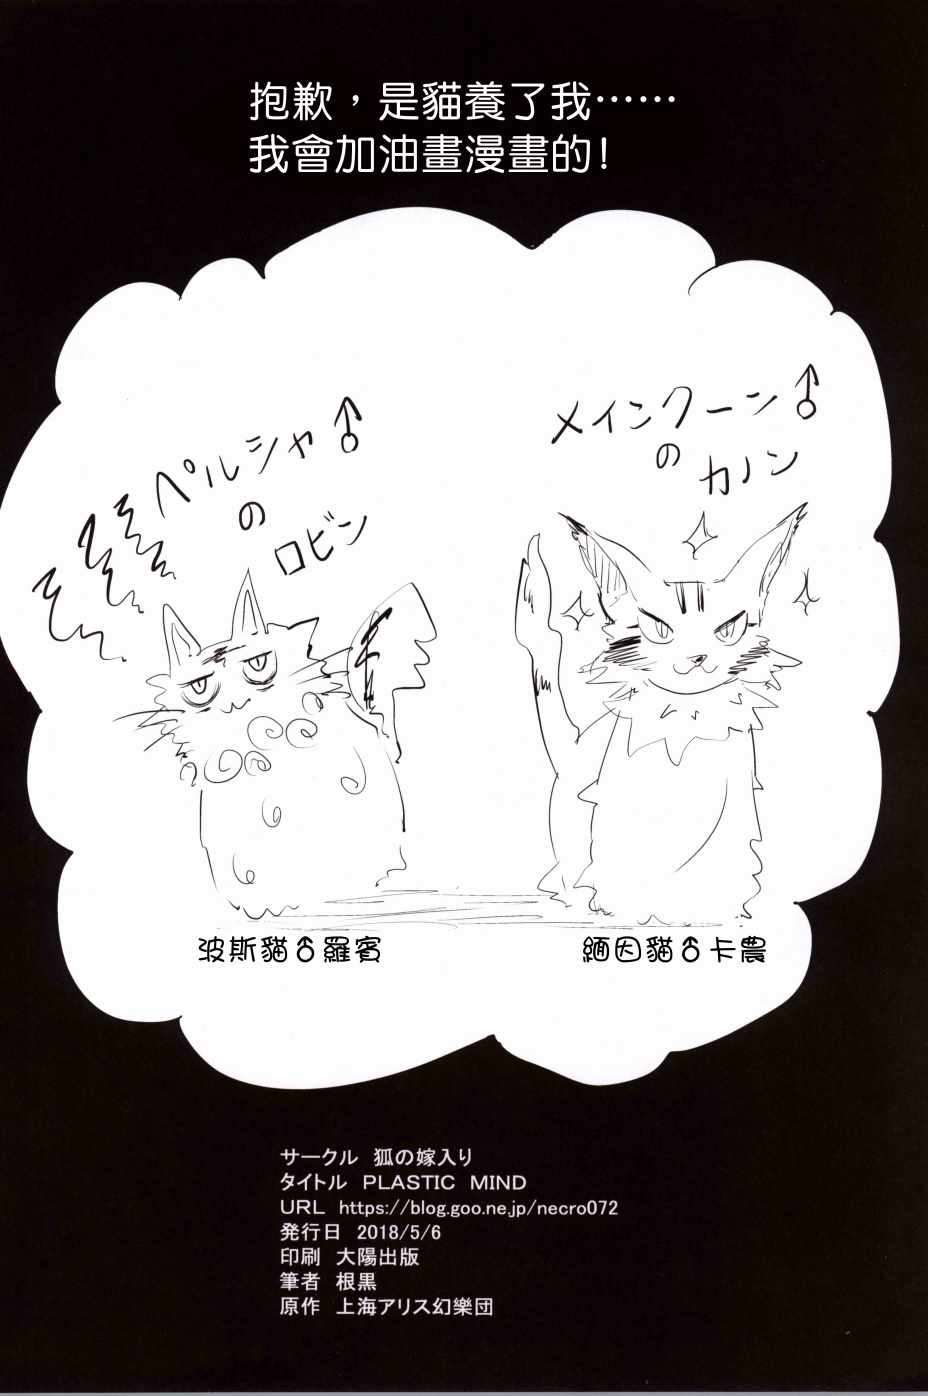 抱歉，是貓養了我⋯⋯
我會加油畫漫畫的！
ペルシャ♂
の
ロビン
メインクーン♂
の
カノン
波斯貓♂羅賓
緬因貓♂卡農
サークル 狐の嫁入り
タイトル PLASTIC MIND
URL https://blog.goo.ne.jp/necro072
発行日 2018/5/6
印刷 大陽出版
筆者 根黒
原作 上海アリス幻樂団